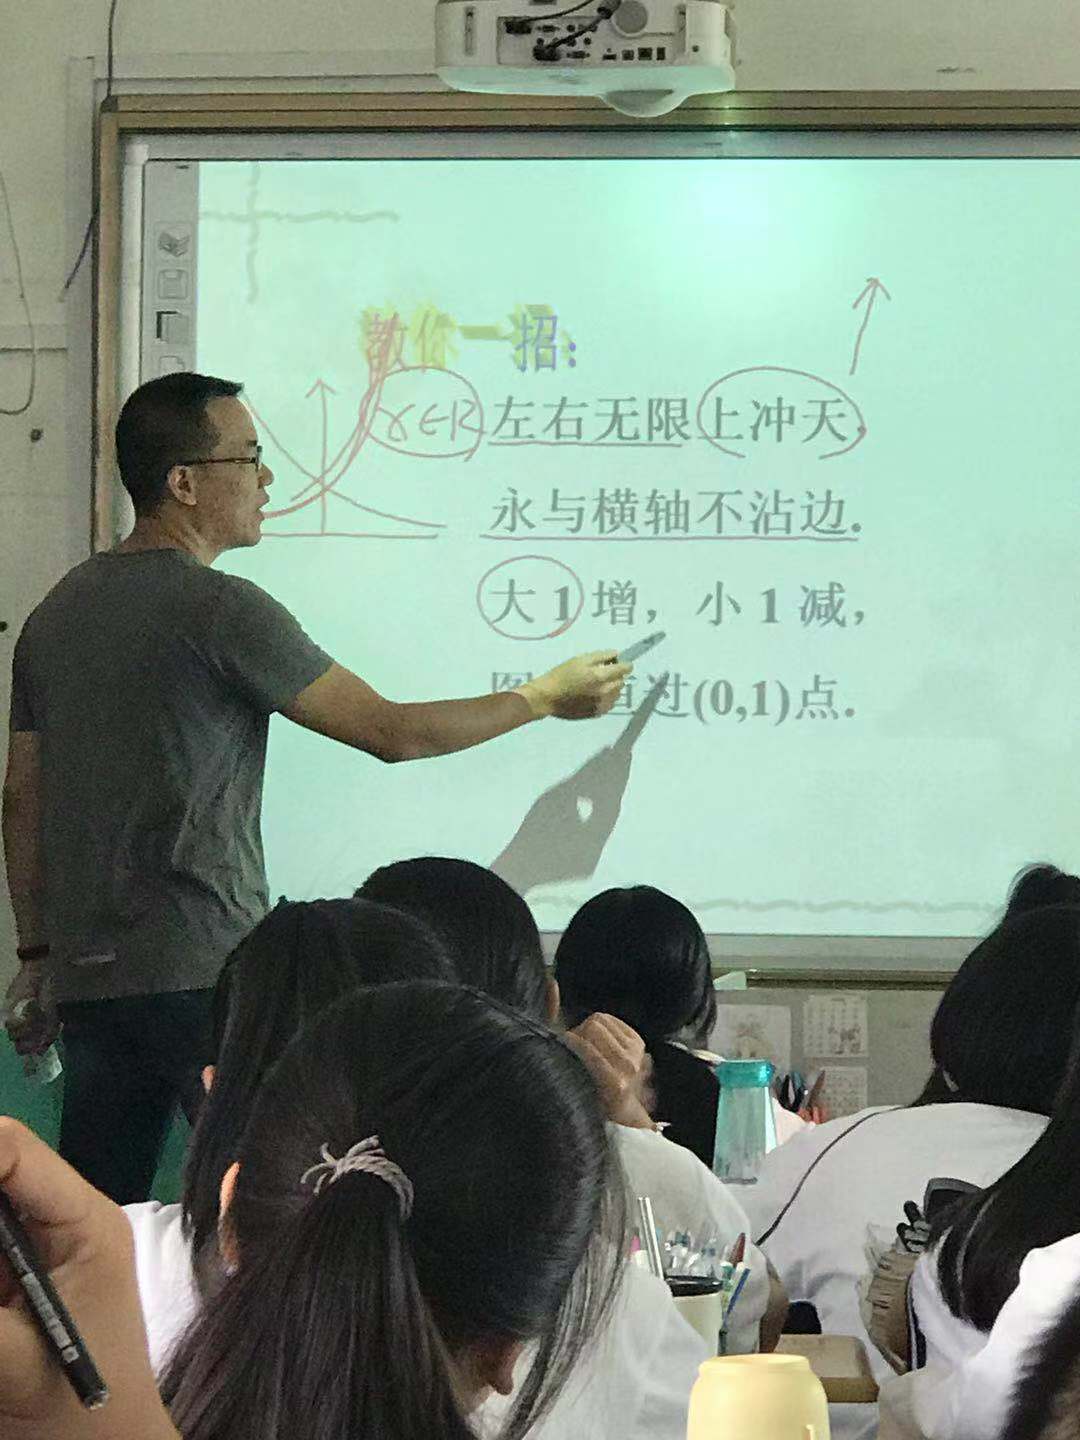 教你一招:
x∈R 左右无限上冲天.
永与横轴不沾边.
大1增，小1减，
图 恒过(0,1)点.